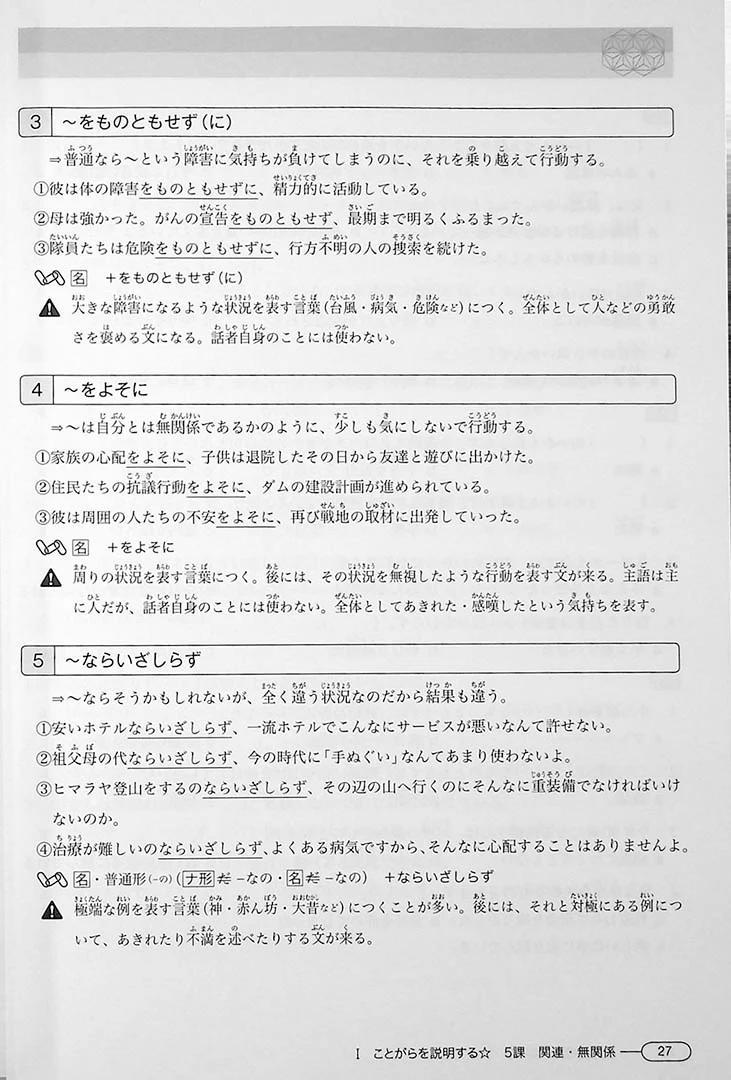 3 ～をものともせず(に)
⇒普通なら～という障害に気持ちが負けてしまうのに、それを乗り越えて行動する。
①彼は体の障害をものともせずに、精力的に活動している。
②母は強かった。がんの宣告をものともせず、最期まで明るくふるまった。
③隊員たちは危険をものともせずに、行方不明の人の捜索を続けた。
名 ＋をものともせず(に)
大きな障害になるような状況を表す言葉(台風・病気・危険など)につく。全体として人などの勇敢
さを褒める文になる。話者自身のことには使わない。
4 ～をよそに
⇒～は自分とは無関係であるかのように、少しも気にしないで行動する。
①家族の心配をよそに、子供は退院したその日から友達と遊びに出かけた。
②住民たちの抗議行動をよそに、ダムの建設計画が進められている。
③彼は周囲の人たちの不安をよそに、再び戦地の取材に出発していった。
名 ＋をよそに
周りの状況を表す言葉につく。後には、その状況を無視したような行動を表す文が来る。主語は主
に人だが、話者自身のことには使わない。全体としてあきれた・感嘆したという気持ちを表す。
5 ～ならいざしらず
⇒～ならそうかもしれないが、全く違う状況なのだから結果も違う。
①安いホテルならいざしらず、一流ホテルでこんなにサービスが悪いなんて許せない。
②祖父母の代ならいざしらず、今の時代に「手ぬぐい」なんてあまり使わないよ。
③ヒマラヤ登山をするのならいざしらず、その辺の山へ行くのにそんなに重装備でなければいけ
ないのか。
④治療が難しいのならいざしらず、よくある病気ですから、そんなに心配することはありませんよ。
名・普通形(-の)(ナ形だ-なの・名だ-なの) ＋ならいざしらず
極端な例を表す言葉(神・赤ん坊・大昔など)につくことが多い。後には、それと対極にある例につ
いて、あきれたり不満を述べたりする文が来る。
Ⅰ ことがらを説明する☆ 5課 関連・無関係 27